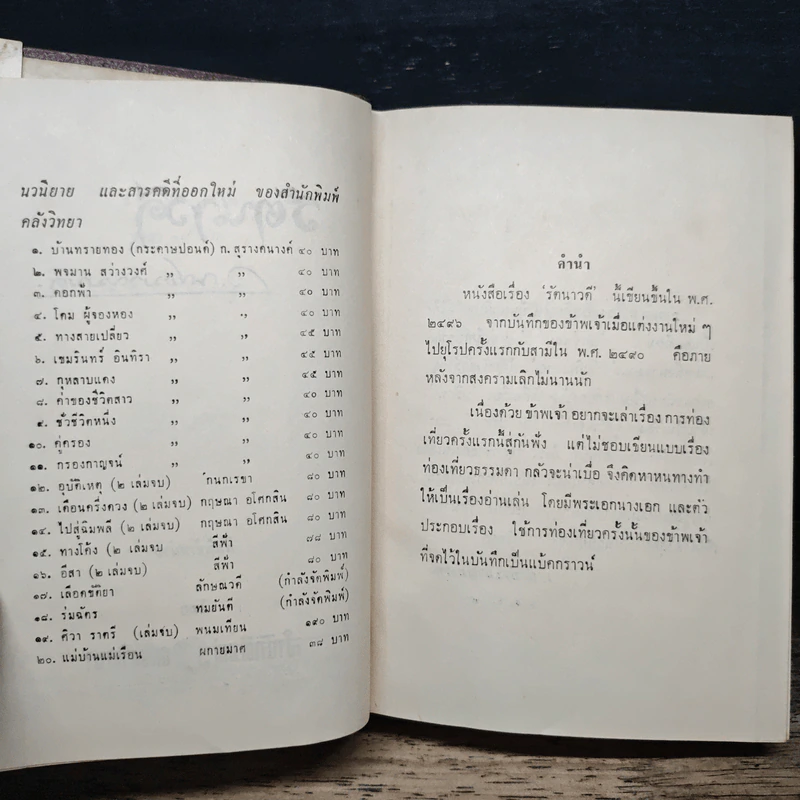 นวนิยาย และสารคดีที่ออกใหม่ ของสำนักพิมพ์
คลังวิทยา
๑. บ้านทรายทอง (กระดาษปอนด์) ก. สุรางคนางค์ ๔๐ บาท
๒. พจมาน สว่างวงศ์ ,, ,, ๔๐ บาท
๓. ดอกฟ้า ,, ,, ๔๐ บาท
๔. โดม ผู้จองหอง ,, ,, ๔๐ บาท
๕. ทางสายเปลี่ยว ,, ,, ๔๕ บาท
๖. เขมรินทร์ อินทิรา ,, ,, ๔๕ บาท
๗. กุหลาบแดง ,, ,, ๔๕ บาท
๘. ค่าของชีวิตสาว ,, ,, ๔๐ บาท
๙. ชั่วชีวิตหนึ่ง ,, ,, ๔๐ บาท
๑๐. คู่ครอง ,, ,, ๔๐ บาท
๑๑. กรองกาญจน์ ,, ,, ๔๐ บาท
๑๒. อุบัติเหตุ (๒ เล่มจบ) กนกเรขา ๘๐ บาท
๑๓. เดือนครึ่งดวง (๒ เล่มจบ) กฤษณา อโศกสิน ๘๐ บาท
๑๔. ไปสู่ฉิมพลี (๒ เล่มจบ) กฤษณา อโศกสิน ๘๐ บาท
๑๕. ทางโค้ง (๒ เล่มจบ สีฟ้า ๗๘ บาท
๑๖. อีสา (๒ เล่มจบ) สีฟ้า ๘๐ บาท
๑๗. เลือดขัติยา ลักษณวดี (กำลังจัดพิมพ์)
๑๘. ร่มฉัตร ทมยันตี (กำลังจัดพิมพ์)
๑๙. ศิวา ราตรี (เล่มจบ) พนมเทียน ๑๙๐ บาท
๒๐. แม่บ้านแม่เรือน ผกายมาศ ๓๘ บาท
คำนำ
หนังสือเรื่อง 'รัตนาวดี' นี้เขียนขึ้นใน พ.ศ.
๒๔๙๖ จากบันทึกของข้าพเจ้าเมื่อแต่งงานใหม่ ๆ
ไปยุโรปครั้งแรกกับสามีใน พ.ศ. ๒๔๙๐ คือภาย
หลังจากสงครามเลิกไม่นานนัก
เนื่องด้วย ข้าพเจ้า อยากจะเล่าเรื่อง การท่อง
เที่ยวครั้งแรกนี้สู่กันฟัง แต่ไม่ชอบเขียนแบบเรื่อง
ท่องเที่ยวธรรมดา กลัวจะน่าเบื่อ จึงคิดหาหนทางทำ
ให้เป็นเรื่องอ่านเล่น โดยมีพระเอกนางเอก และตัว
ประกอบเรื่อง ใช้การท่องเที่ยวครั้งนั้นของข้าพเจ้า
ที่จดไว้ในบันทึกเป็นแบ้คกราวน์